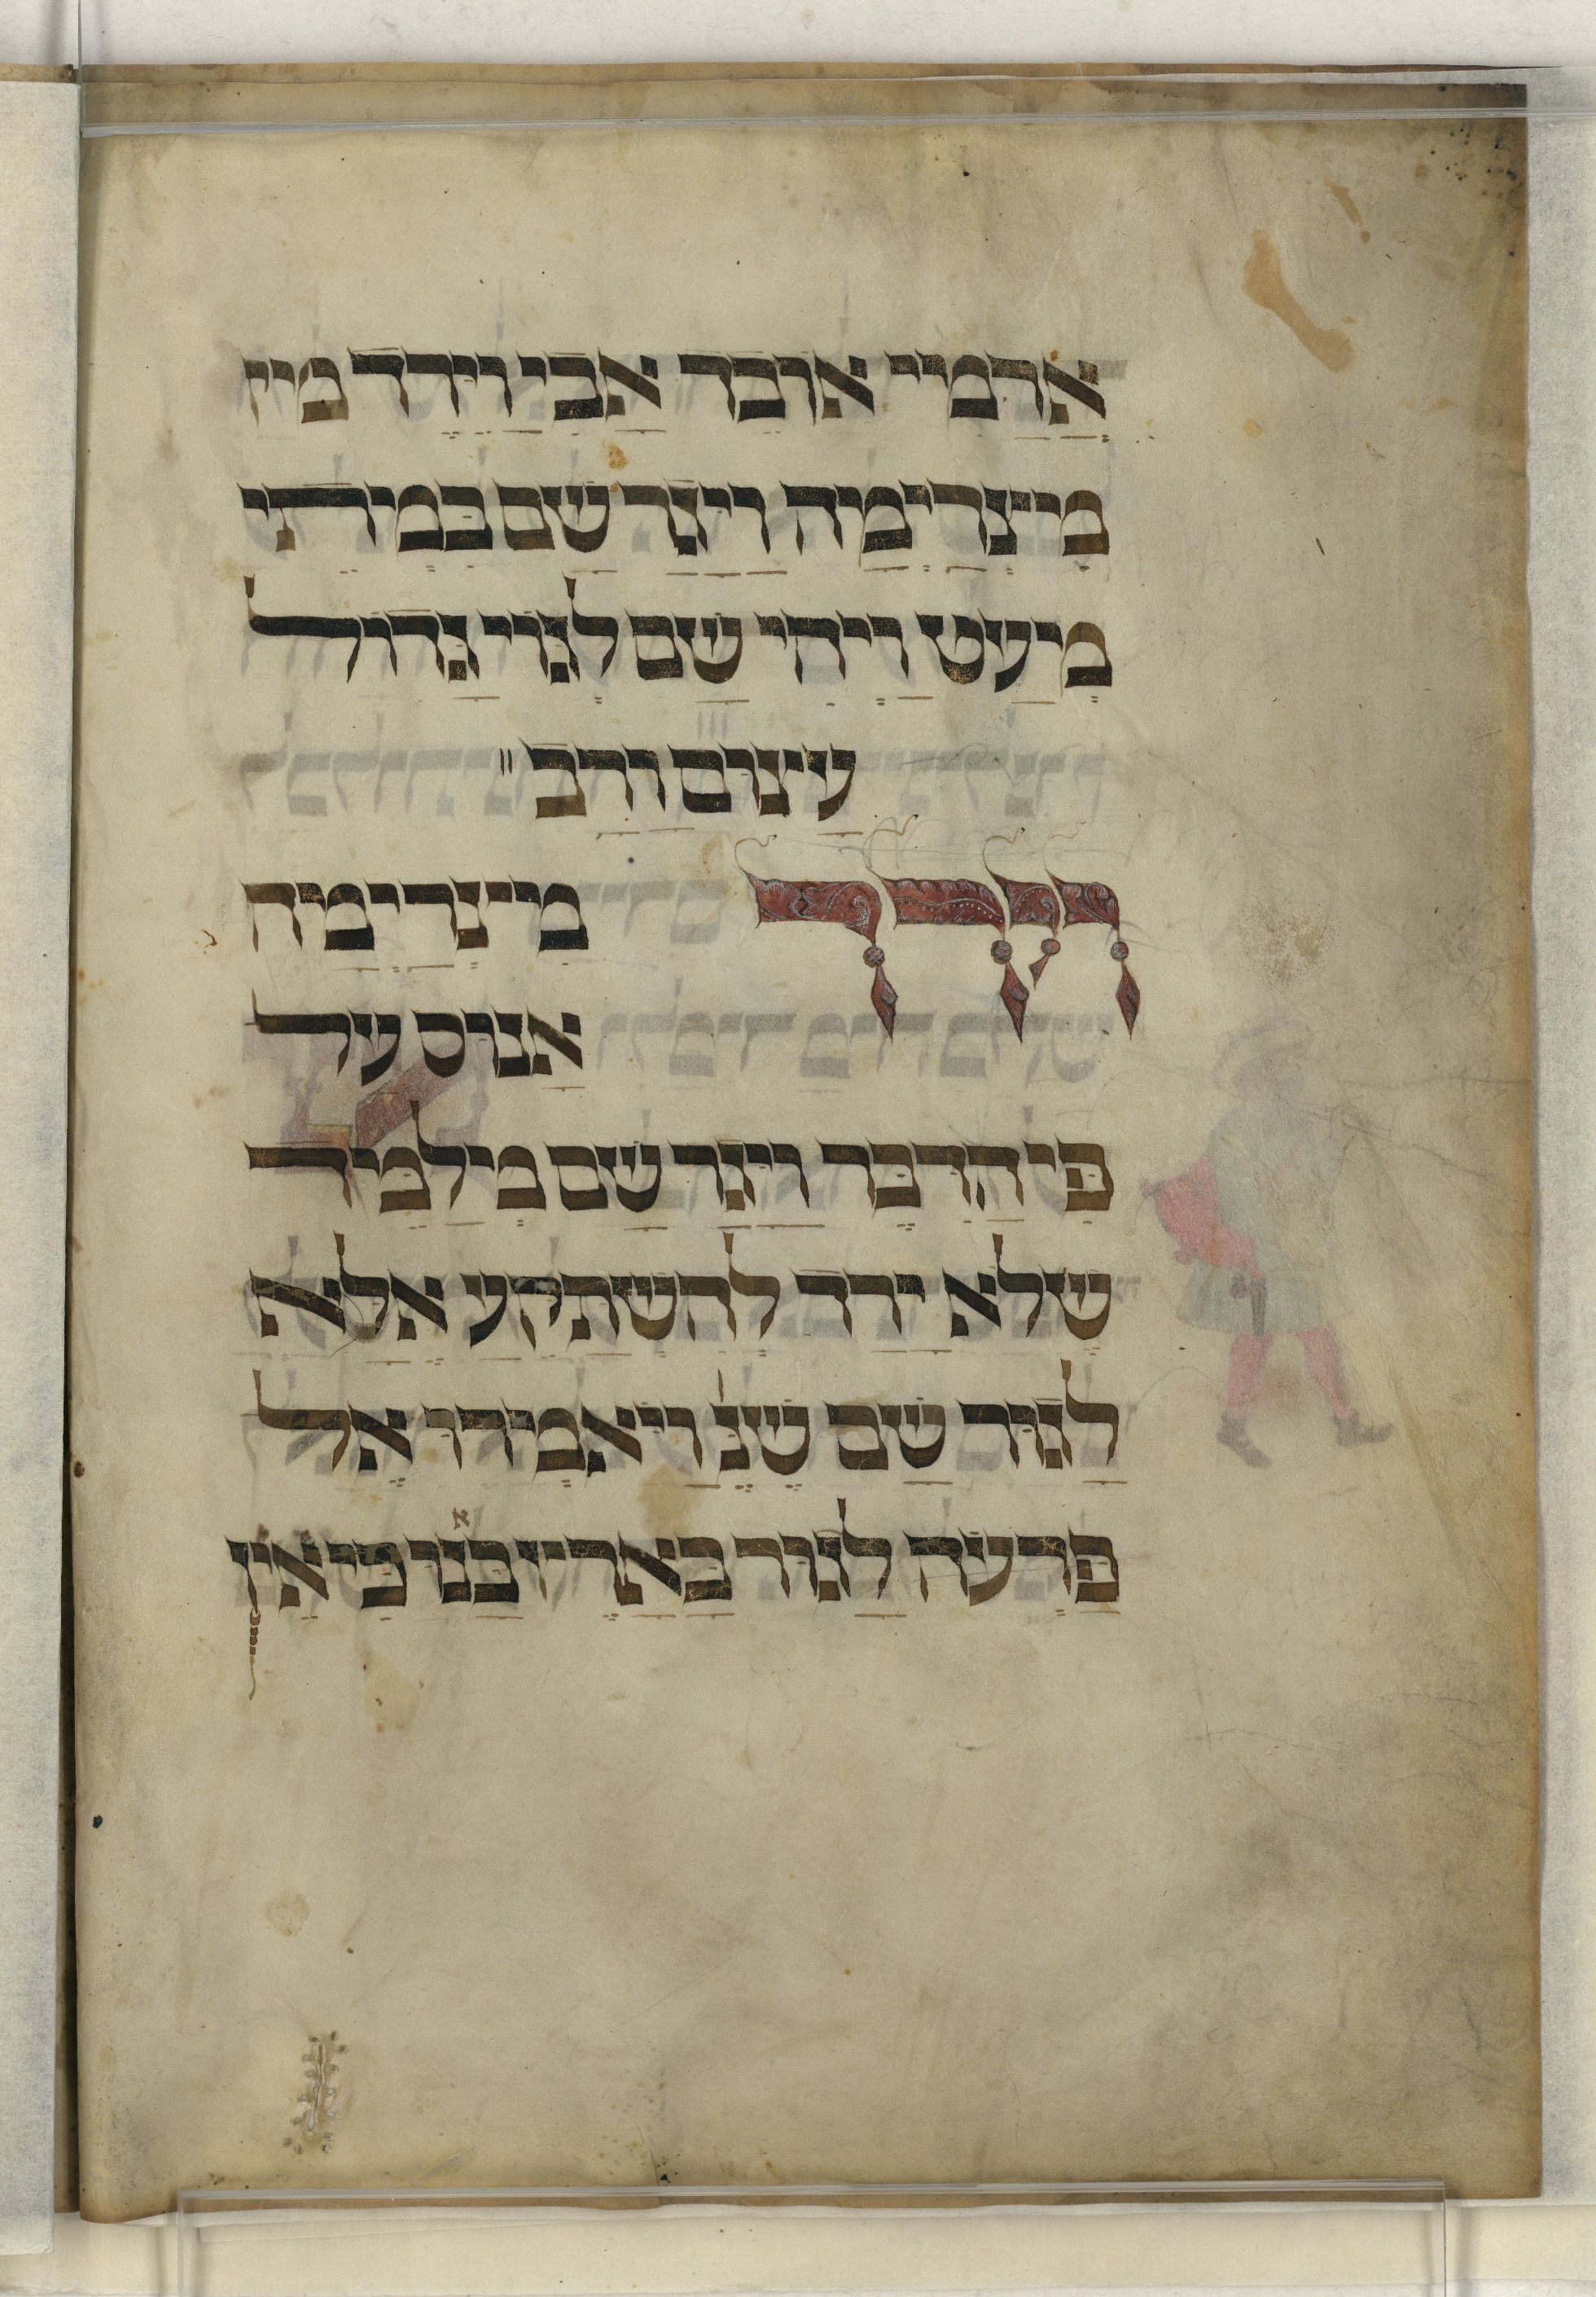 ארמיי אובד אבי וירד מיי
מיצרימה ויגר שם במיתי
מיעט ויהי שם לגוי גדול
עיצום ורב "
וירד מיצרימה
אנוס על
פי הדבר ויגר שם מילמיד
שלא ירד להשתקע אלא
לגור שם שנ' ויאמירו אל
פרעה לגור בארץ באנו כי אין